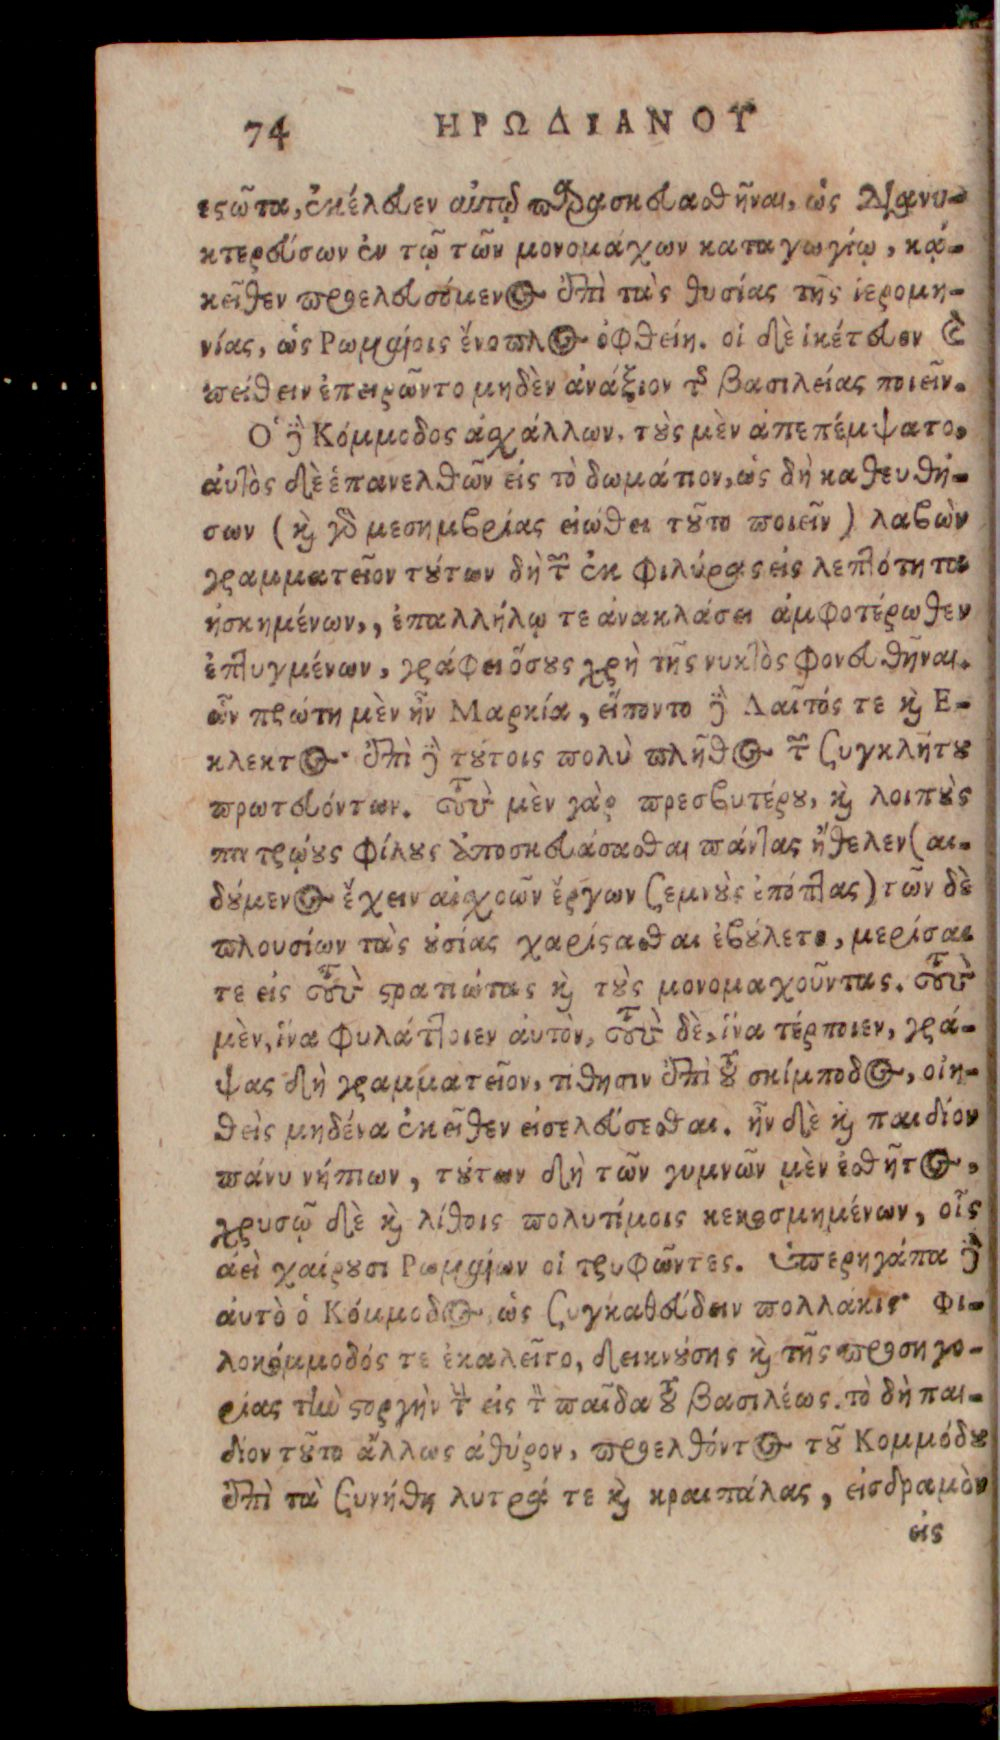 74 ΗΡΩΔΙΑΝΟΥ
εστῶτα, ἐκέλευεν αὐτῷ παρασκευασθῆναι, ὡς διανυ-
κτερεύσων ἐν τῷ τῶν μονομάχων καταγωγίῳ, κἀ-
κεῖθεν προελευσόμενος ἐπὶ τὰς θυσίας τῆς ἱερομη-
νίας, ὡς Ρωμαίοις ἔνοπλος ὀφθείη. οἱ δὲ ἱκέτευον καὶ
πείθειν ἐπειρῶντο μηδὲν ἀνάξιον τῆς βασιλείας ποιεῖν.
Ὁ δὲ Κόμμοδος ἀσχάλλων, τοὺς μὲν ἀπεπέμψατο,
αὐτὸς δὲ ἐπανελθὼν εἰς τὸ δωμάτιον, ὡς δὴ καθευδή-
σων (καὶ γὸ μεσημβρίας εἰώθει τοῦτο ποιεῖν) λαβὼν
γραμματεῖον τούτων δὴ τῶν ἐκ φιλύρας εἰς λεπτότητα
ἠσκημένων,, ἐπαλλήλῳ τε ἀνακλάσει ἀμφοτέρωθεν
ἐπτυγμένων, γράφει ὅσους χρὴ τῆς νυκτὸς φονευθῆναι.
ὧν πρώτη μὲν ἦν Μαρκία, εἵποντο δὲ Λαῖτός τε καὶ Ε-
κλεκτος· ἐπὶ δὲ τούτοις πολὺ πλῆθος τῶν συγκλήτου
πρωτευόντων. τοὺς μὲν γὰρ πρεσβυτέρου, καὶ λοιποὺς
πατρῴους φίλους ἀποσκευάσασθαι πάντας ἤθελεν (αι-
δούμενος ἔχειν αἰσχρῶν ἔργων σεμνοὺς ἐπόπτας) τῶν δὲ
πλουσίων τὰς οὐσίας χαρίσασθαι ἐβούλετο, μερίσαι
τε εἰς τοὺς στρατιώτας καὶ τοὺς μονομαχοῦντας. τοὺς
μὲν, ἵνα φυλάττοιεν αὐτὸν, τοὺς δὲ, ἵνα τέρποιεν, γρά-
ψας δὴ γραμματεῖον, τίθησιν ἐπὶ τοῦ σκίμποδος, οἰη-
θεὶς μηδένα ἐκεῖθεν εἰσελεύσεσθαι. ἦν δὲ καὶ παιδίον
πάνυ νήπιων, τούτων δὴ τῶν γυμνῶν μὲν ἐσθῆτος,
χρυσῷ δὲ καὶ λίθοις πολυτίμοις κεκοσμημένων, οἷς
ἀεὶ χαίρουσι Ρωμαίων οἱ τρυφῶντες. ὑπερηγάπα δὲ
αὐτὸ ὁ Κόμμοδος, ὡς συγκαθεύδειν πολλάκις· Φι-
λοκόμμοδός τε ἐκαλεῖτο, δεικνούσης καὶ τῆς προσηγο-
ρίας τὴν στοργὴν τὴν εἰς τὸν παῖδα τοῦ βασιλέως. τὸ δὴ παι-
δίον τοῦτο ἄλλως ἀθύρον, προελθόντος τοῦ Κομμόδου
ἐπὶ τὰ συνήθη λουτρά τε καὶ κραιπάλας, εἰσδραμὸν
εἰς